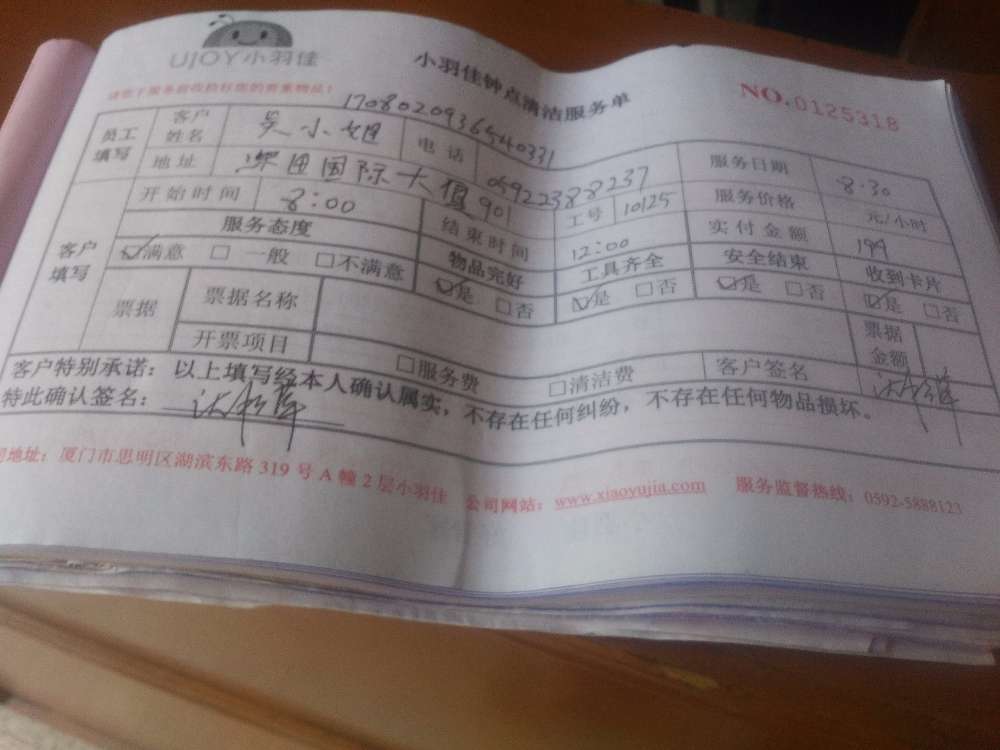 UJOY小羽佳
小羽佳钟点清洁服务单
NO.0125318
1708020936540331
员工填写 客户姓名 吴小姐 电话 05922388237 服务日期 8.30
地址 深田国际大厦901 工号 10125 服务价格 元/小时
客户填写 开始时间 8:00 结束时间 12:00 实付金额 199
服务态度 物品完好 工具齐全 安全结束 收到卡片
☑满意 □一般 □不满意 ☑是 □否 ☑是 □否 ☑是 □否 ☑是 □否
票据 票据名称 票据金额
开票项目 □服务费 □清洁费 客户签名
客户特别承诺：以上填写经本人确认属实，不存在任何纠纷，不存在任何物品损坏。
特此确认签名：
司地址：厦门市思明区湖滨东路319号A幢2层小羽佳 公司网站：www.xiaoyujia.com 服务监督热线：0592-5888123